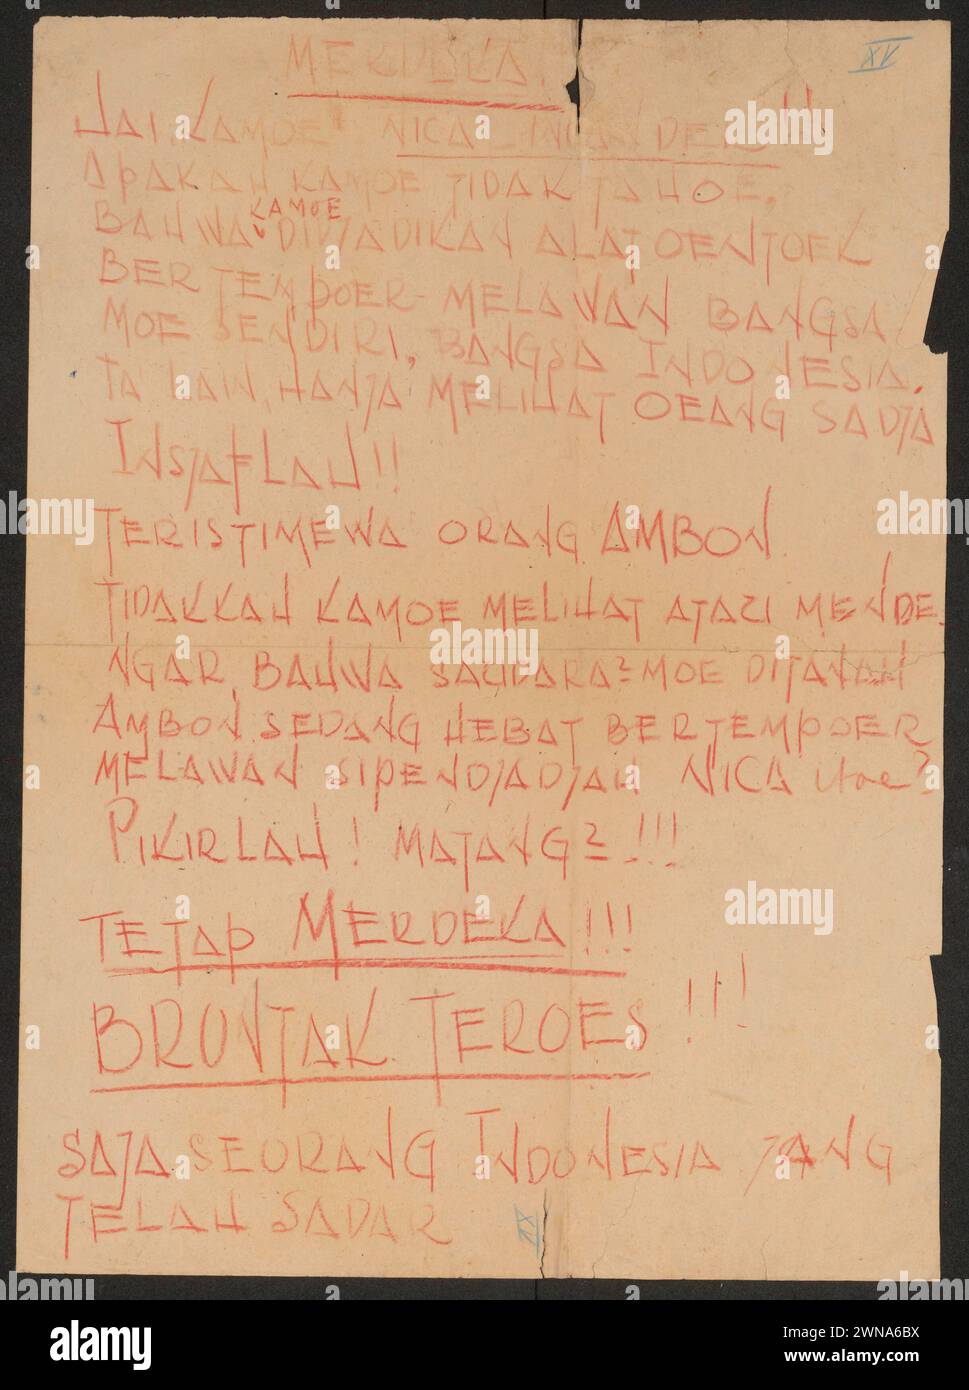 MERDEKA.
XV
HAI, KAMOE NICA
APAKAH KAMOE TIDAK TAHOE,
BAHWA KAMOE DIDJADIKAN ALAT OENTOEK
BERTEMPOER MELAWAN BANGSA
MOE SENDIRI, BANGSA INDONESIA.
TA' LAIN, HANJA MELIHAT OEANG SADJA
INSJAFLAH!!
TERISTIMEWA ORANG AMBON.
TIDAKKAH KAMOE MELIHAT ATAU MENDE-
NGAR, BAHWA SAUDARA2MOE DITANAH
AMBON SEDANG HEBAT BERTEMPOER
MELAWAN SIPENDJADJAH NICA itoe?
PIKIRLAH! MATANG2!!!
TETAP MERDEKA!!!
BRONTAK TEROES!!!
SAJA SEORANG INDONESIA JANG
TELAH SADAR
alamy
alamy
Image ID: 2WNA6BX
www.alamy.com